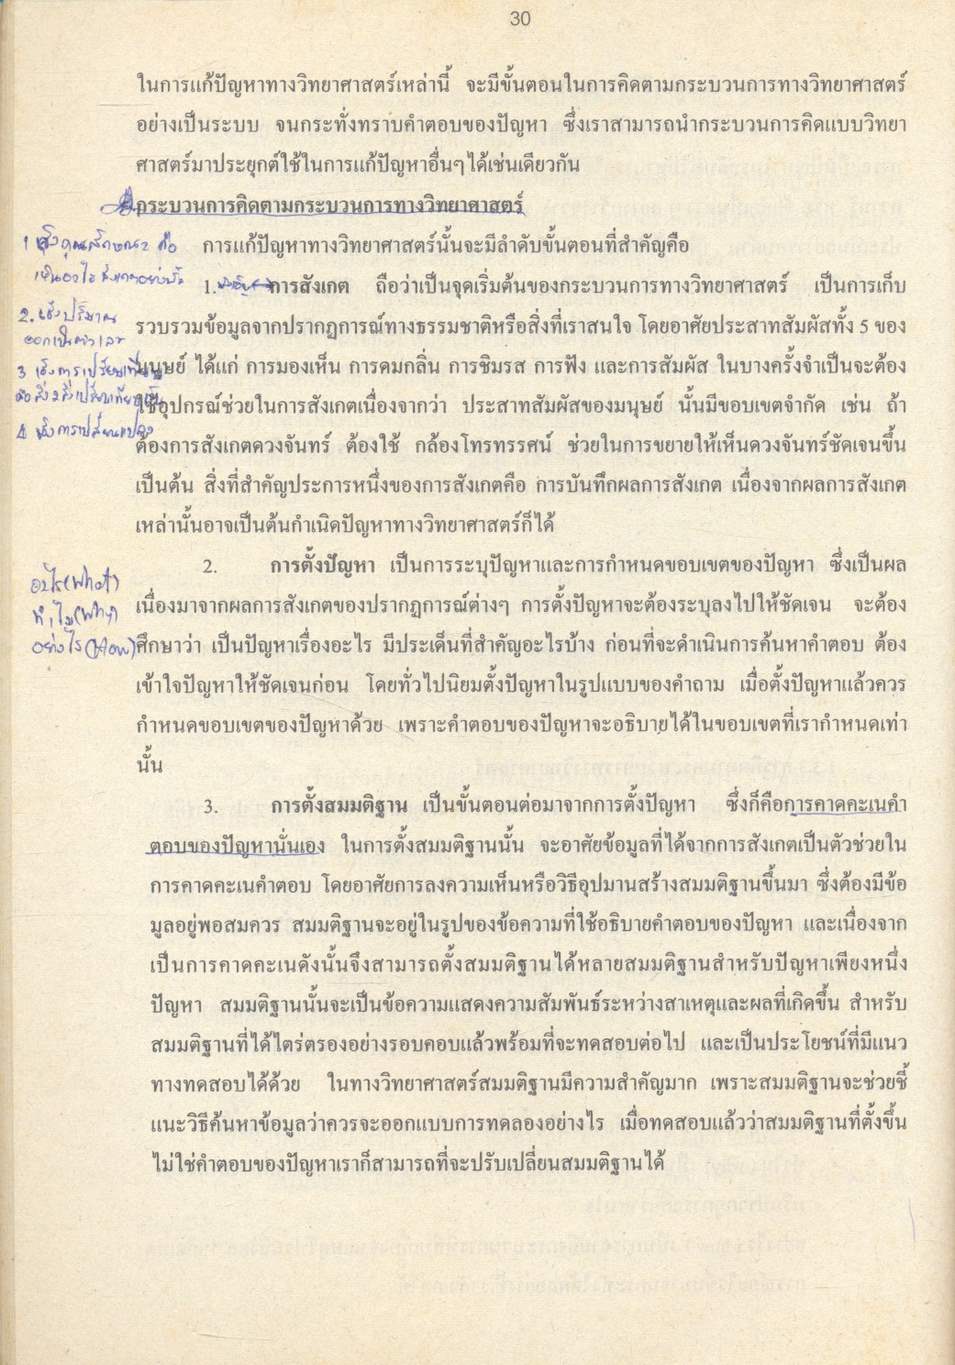 30
ในการแก้ปัญหาทางวิทยาศาสตร์เหล่านี้ จะมีขั้นตอนในการคิดตามกระบวนการทางวิทยาศาสตร์
อย่างเป็นระบบ จนกระทั่งทราบคำตอบของปัญหา ซึ่งเราสามารถนำกระบวนการคิดแบบวิทยา
ศาสตร์มาประยุกต์ใช้ในการแก้ปัญหาอื่นๆ ได้เช่นเดียวกัน
กระบวนการคิดตามกระบวนการทางวิทยาศาสตร์
การแก้ปัญหาทางวิทยาศาสตร์นั้นจะมีลำดับขั้นตอนที่สำคัญคือ
1. การสังเกต ถือว่าเป็นจุดเริ่มต้นของกระบวนการทางวิทยาศาสตร์ เป็นการเก็บ
รวบรวมข้อมูลจากปรากฏการณ์ทางธรรมชาติหรือสิ่งที่เราสนใจ โดยอาศัยประสาทสัมผัสทั้ง 5 ของ
มนุษย์ ได้แก่ การมองเห็น การดมกลิ่น การชิมรส การฟัง และการสัมผัส ในบางครั้งจำเป็นจะต้อง
ใช้อุปกรณ์ช่วยในการสังเกตเนื่องจากว่า ประสาทสัมผัสของมนุษย์ นั้นมีขอบเขตจำกัด เช่น ถ้า
ต้องการสังเกตดวงจันทร์ ต้องใช้ กล้องโทรทรรศน์ ช่วยในการขยายให้เห็นดวงจันทร์ชัดเจนขึ้น
เป็นต้น สิ่งที่สำคัญประการหนึ่งของการสังเกตคือ การบันทึกผลการสังเกต เนื่องจากผลการสังเกต
เหล่านั้นอาจเป็นต้นกำเนิดปัญหาทางวิทยาศาสตร์ก็ได้
2. การตั้งปัญหา เป็นการระบุปัญหาและการกำหนดขอบเขตของปัญหา ซึ่งเป็นผล
เนื่องมาจากผลการสังเกตของปรากฏการณ์ต่างๆ การตั้งปัญหาจะต้องระบุลงไปให้ชัดเจน จะต้อง
ศึกษาว่า เป็นปัญหาเรื่องอะไร มีประเด็นที่สำคัญอะไรบ้าง ก่อนที่จะดำเนินการค้นหาคำตอบ ต้อง
เข้าใจปัญหาให้ชัดเจนก่อน โดยทั่วไปนิยมตั้งปัญหาในรูปแบบของคำถาม เมื่อตั้งปัญหาแล้วควร
กำหนดขอบเขตของปัญหาด้วย เพราะคำตอบของปัญหาจะอธิบายได้ในขอบเขตที่เรากำหนดเท่า
นั้น
3. การตั้งสมมติฐาน เป็นขั้นตอนต่อมาจากการตั้งปัญหา ซึ่งก็คือการคาดคะเนคำ
ตอบของปัญหานั่นเอง ในการตั้งสมมติฐานนั้น จะอาศัยข้อมูลที่ได้จากการสังเกตเป็นตัวช่วยใน
การคาดคะเนคำตอบ โดยอาศัยการลงความเห็นหรือวิธีอุปมานสร้างสมมติฐานขึ้นมา ซึ่งต้องมีข้อ
มูลอยู่พอสมควร สมมติฐานจะอยู่ในรูปของข้อความที่ใช้อธิบายคำตอบของปัญหา และเนื่องจาก
เป็นการคาดคะเนดังนั้นจึงสามารถตั้งสมมติฐานได้หลายสมมติฐานสำหรับปัญหาเพียงหนึ่ง
ปัญหา สมมติฐานนั้นจะเป็นข้อความแสดงความสัมพันธ์ระหว่างสาเหตุและผลที่เกิดขึ้น สำหรับ
สมมติฐานที่ได้ไตร่ตรองอย่างรอบคอบแล้วพร้อมที่จะทดสอบต่อไป และเป็นประโยชน์ที่มีแนว
ทางทดสอบได้ด้วย ในทางวิทยาศาสตร์สมมติฐานมีความสำคัญมาก เพราะสมมติฐานจะช่วยชี้
แนะวิธีค้นหาข้อมูลว่าควรจะออกแบบการทดลองอย่างไร เมื่อทดสอบแล้วว่าสมมติฐานที่ตั้งขึ้น
ไม่ใช่คำตอบของปัญหาเราก็สามารถที่จะปรับเปลี่ยนสมมติฐานได้
2. เชิงปริมาณ
ออกเป็นตัวเลข
4 เชิงการเปลี่ยนแปลง
อะไร(What)
ทำไม(Why)
อย่างไร(How)